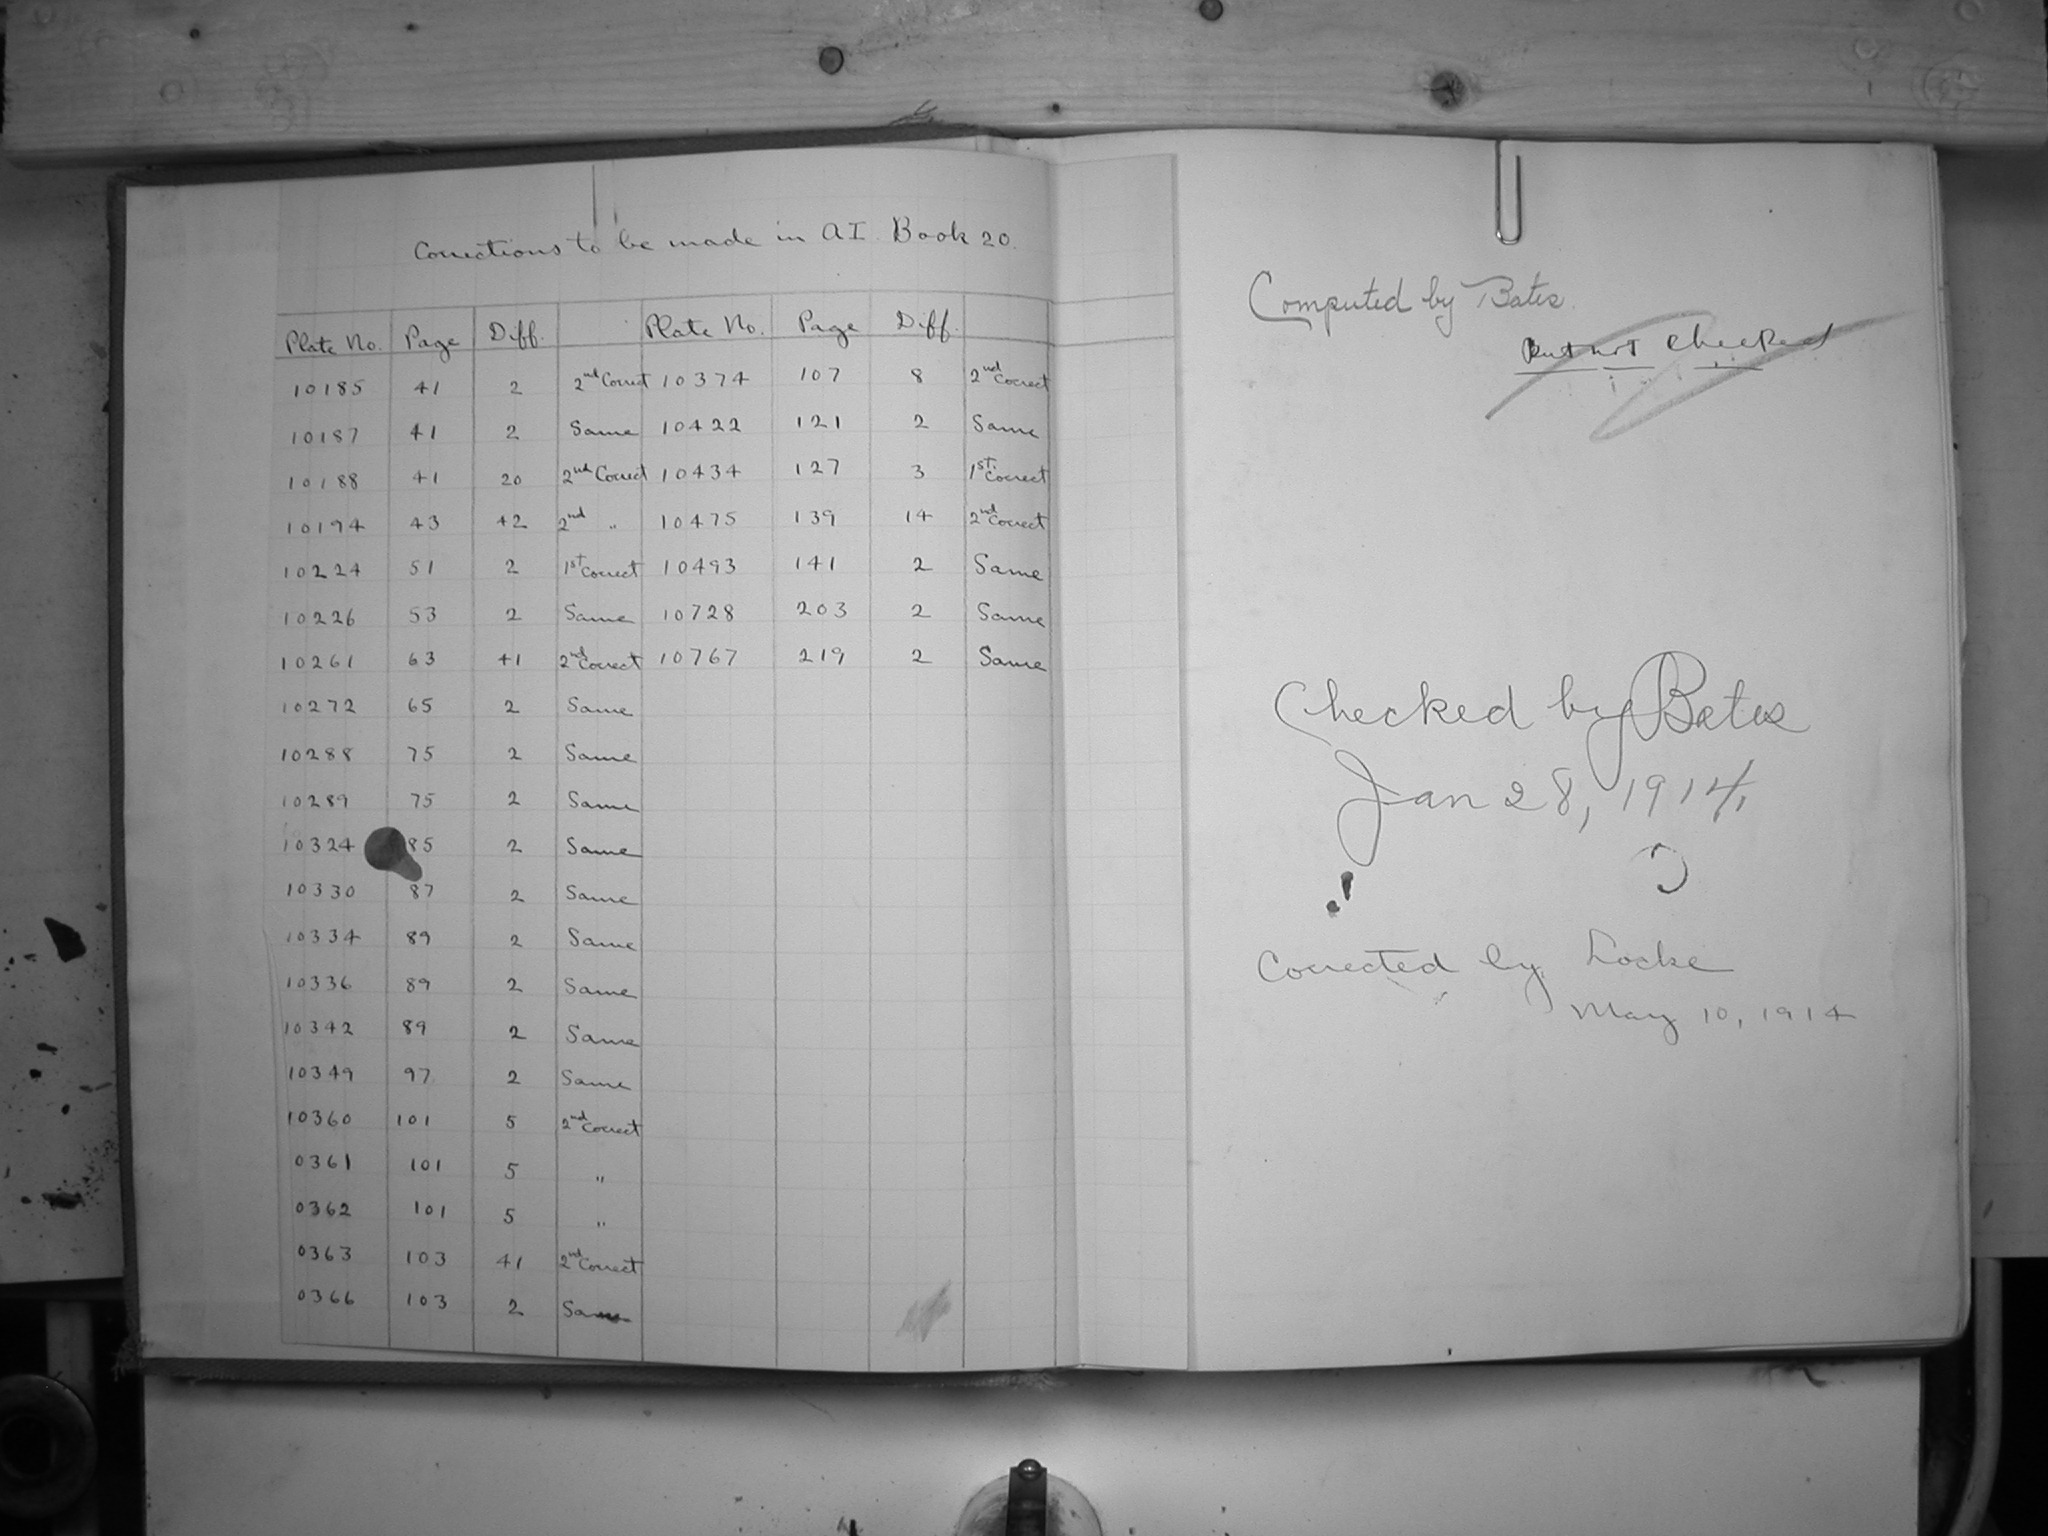 Corrections to be made in AI. Book 20.
Plate No. Page Diff. Plate No. Page Diff.
10185 41 2 2nd Correct 10374 107 8 2nd Correct
10187 41 2 Same 10422 121 2 Same
10188 41 20 2nd Correct 10434 127 3 1st. Correct
10194 43 42 2nd " 10475 139 14 2nd Correct
10224 51 2 1st Correct 10493 141 2 Same
10226 53 2 Same 10728 203 2 Same
10261 63 41 2nd Correct 10767 219 2 Same
10272 65 2 Same
10288 75 2 Same
10289 75 2 Same
10324 85 2 Same
10330 87 2 Same
10334 89 2 Same
10336 89 2 Same
10342 89 2 Same
10349 97 2 Same
10360 101 5 2nd Correct
0361 101 5 "
0362 101 5 "
0363 103 41 2nd Correct
0366 103 2 Same
Computed by Bates.
but not checked
Checked by Bates
Jan 28, 1914,
Corrected by Locke
May 10, 1914